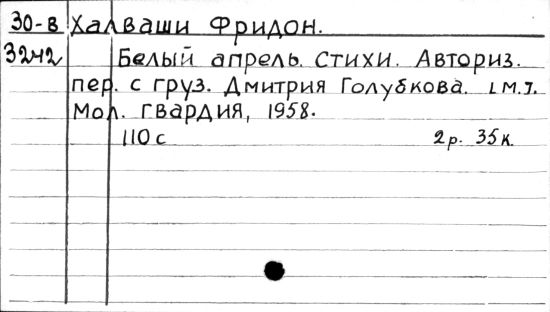 30-8 Халваши Фридон.
3242 Белый апрель. Стихи. Авториз.
пер. с груз. Дмитрия Голубкова. [М.].
Мол. гвардия, 1958.
110 с 2р. 35к.